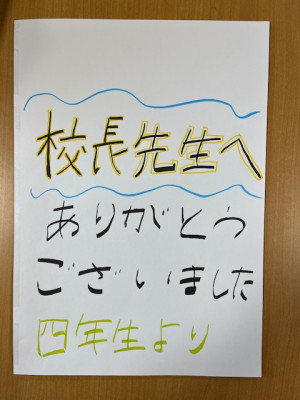 校長先生へ
ありがとう
ございました
四年生より